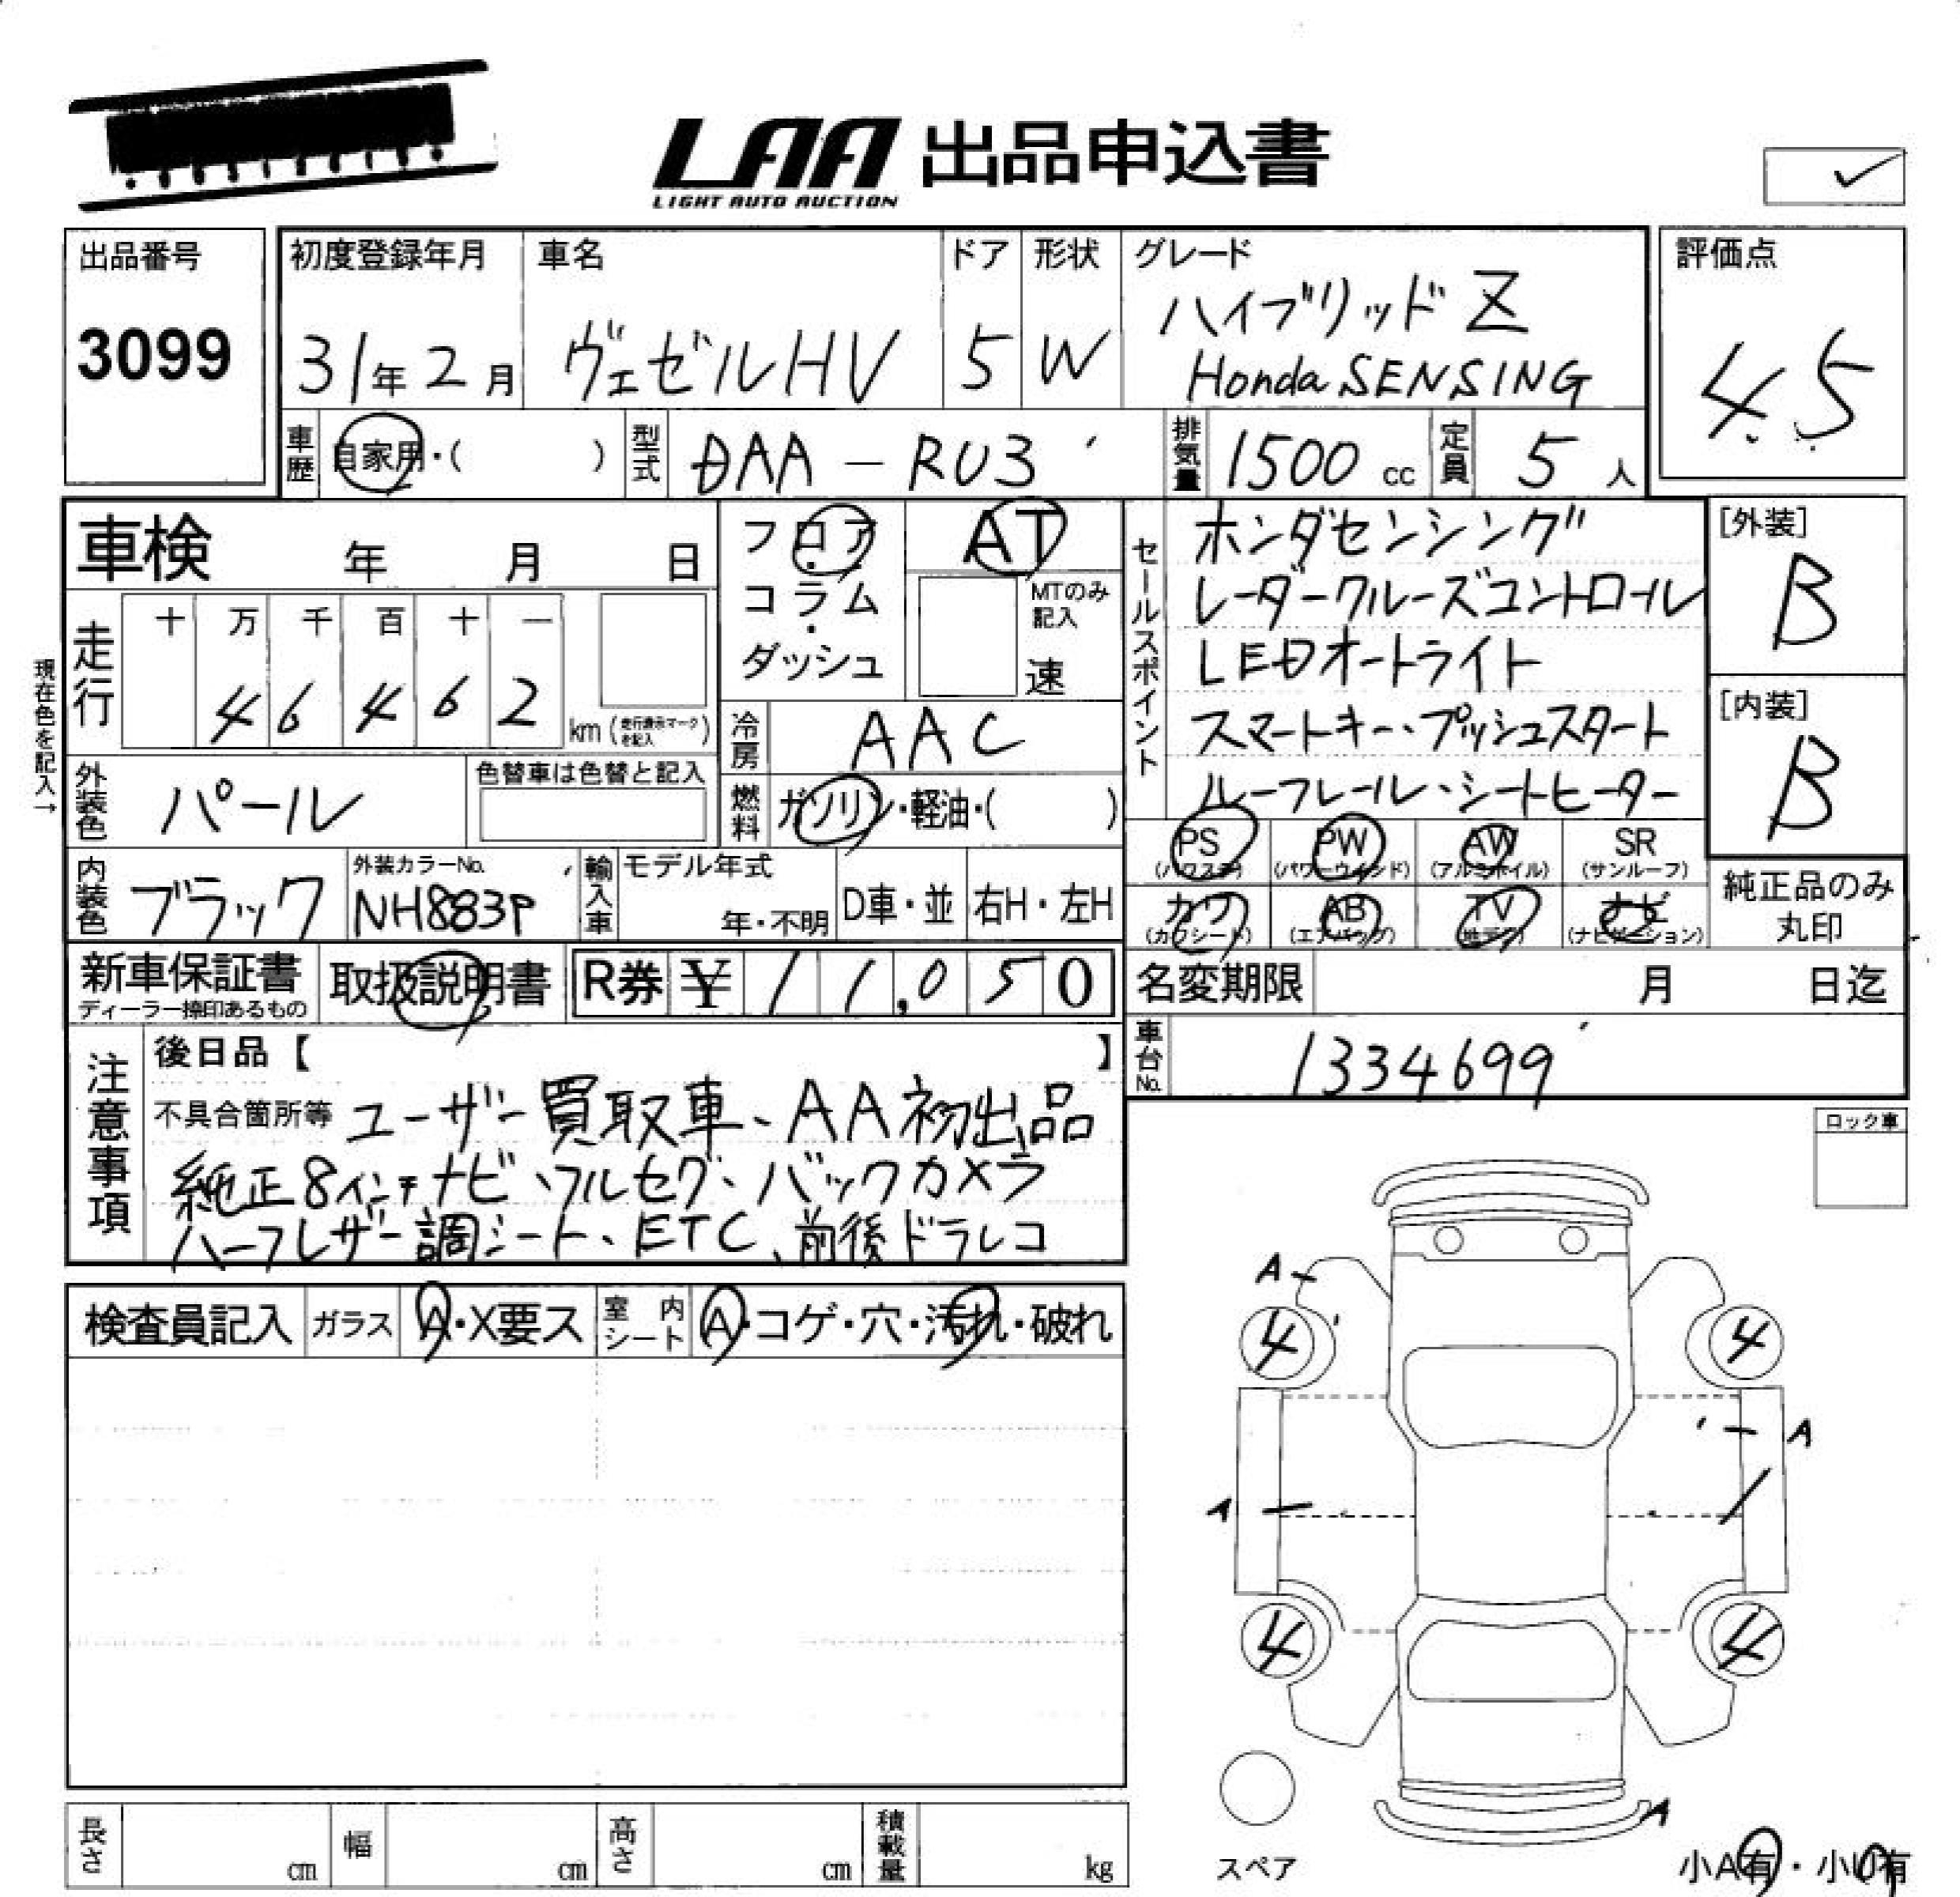 LAA 出品申込書
LIGHT AUTO AUCTION
出品番号
3099
初度登録年月
31年2月
車名
ヴェゼルHV
ドア
5
形状
W
グレード
ハイブリッド Z
Honda SENSING
評価点
4.5
車歴
自家用・( )
型式
DAA-RU3
排気量
1500 cc
定員
5 人
車検 年 月 日
フロア
・
コラム
・
ダッシュ
AT
MTのみ
記入
速
セールスポイント
ホンダセンシング
レーダークルーズコントロール
LEDオートライト
スマートキー、プッシュスタート
ルーフレール、シートヒーター
[外装]
B
[内装]
B
現在色を記入→
走行
十 万 千 百 十 一
4 6 4 6 2
km (走行表示マークを記入)
冷房
AAC
外装色
パール
色替車は色替と記入
燃料
ガソリン・軽油・( )
PS
(パワステ)
PW
(パワーウインド)
AW
(アルミホイル)
SR
(サンルーフ)
カワ
(カワシート)
AB
(エアバッグ)
TV
(地デジ)
ナビ
(ナビゲーション)
純正品のみ
丸印
内装色
ブラック
外装カラーNo.
NH883P
輸入車
モデル年式
年・不明
D車・並
右H・左H
新車保証書
ディーラー捺印あるもの
取扱説明書
R券 ¥ 11,050
名変期限 月 日迄
車台No.
1334699
注意事項
後日品【 】
不具合箇所等 ユーザー買取車、AA初出品
純正8インチナビ、フルセグ、バックカメラ
ハーフレザー調シート、ETC、前後ドラレコ
ロック車
検査員記入
ガラス
A・X要ス
室内シート
A・コゲ・穴・汚れ・破れ
A
4
4
A
A
4
4
A
スペア
小A有・小U有
長さ cm
幅 cm
高さ cm
積載量 kg